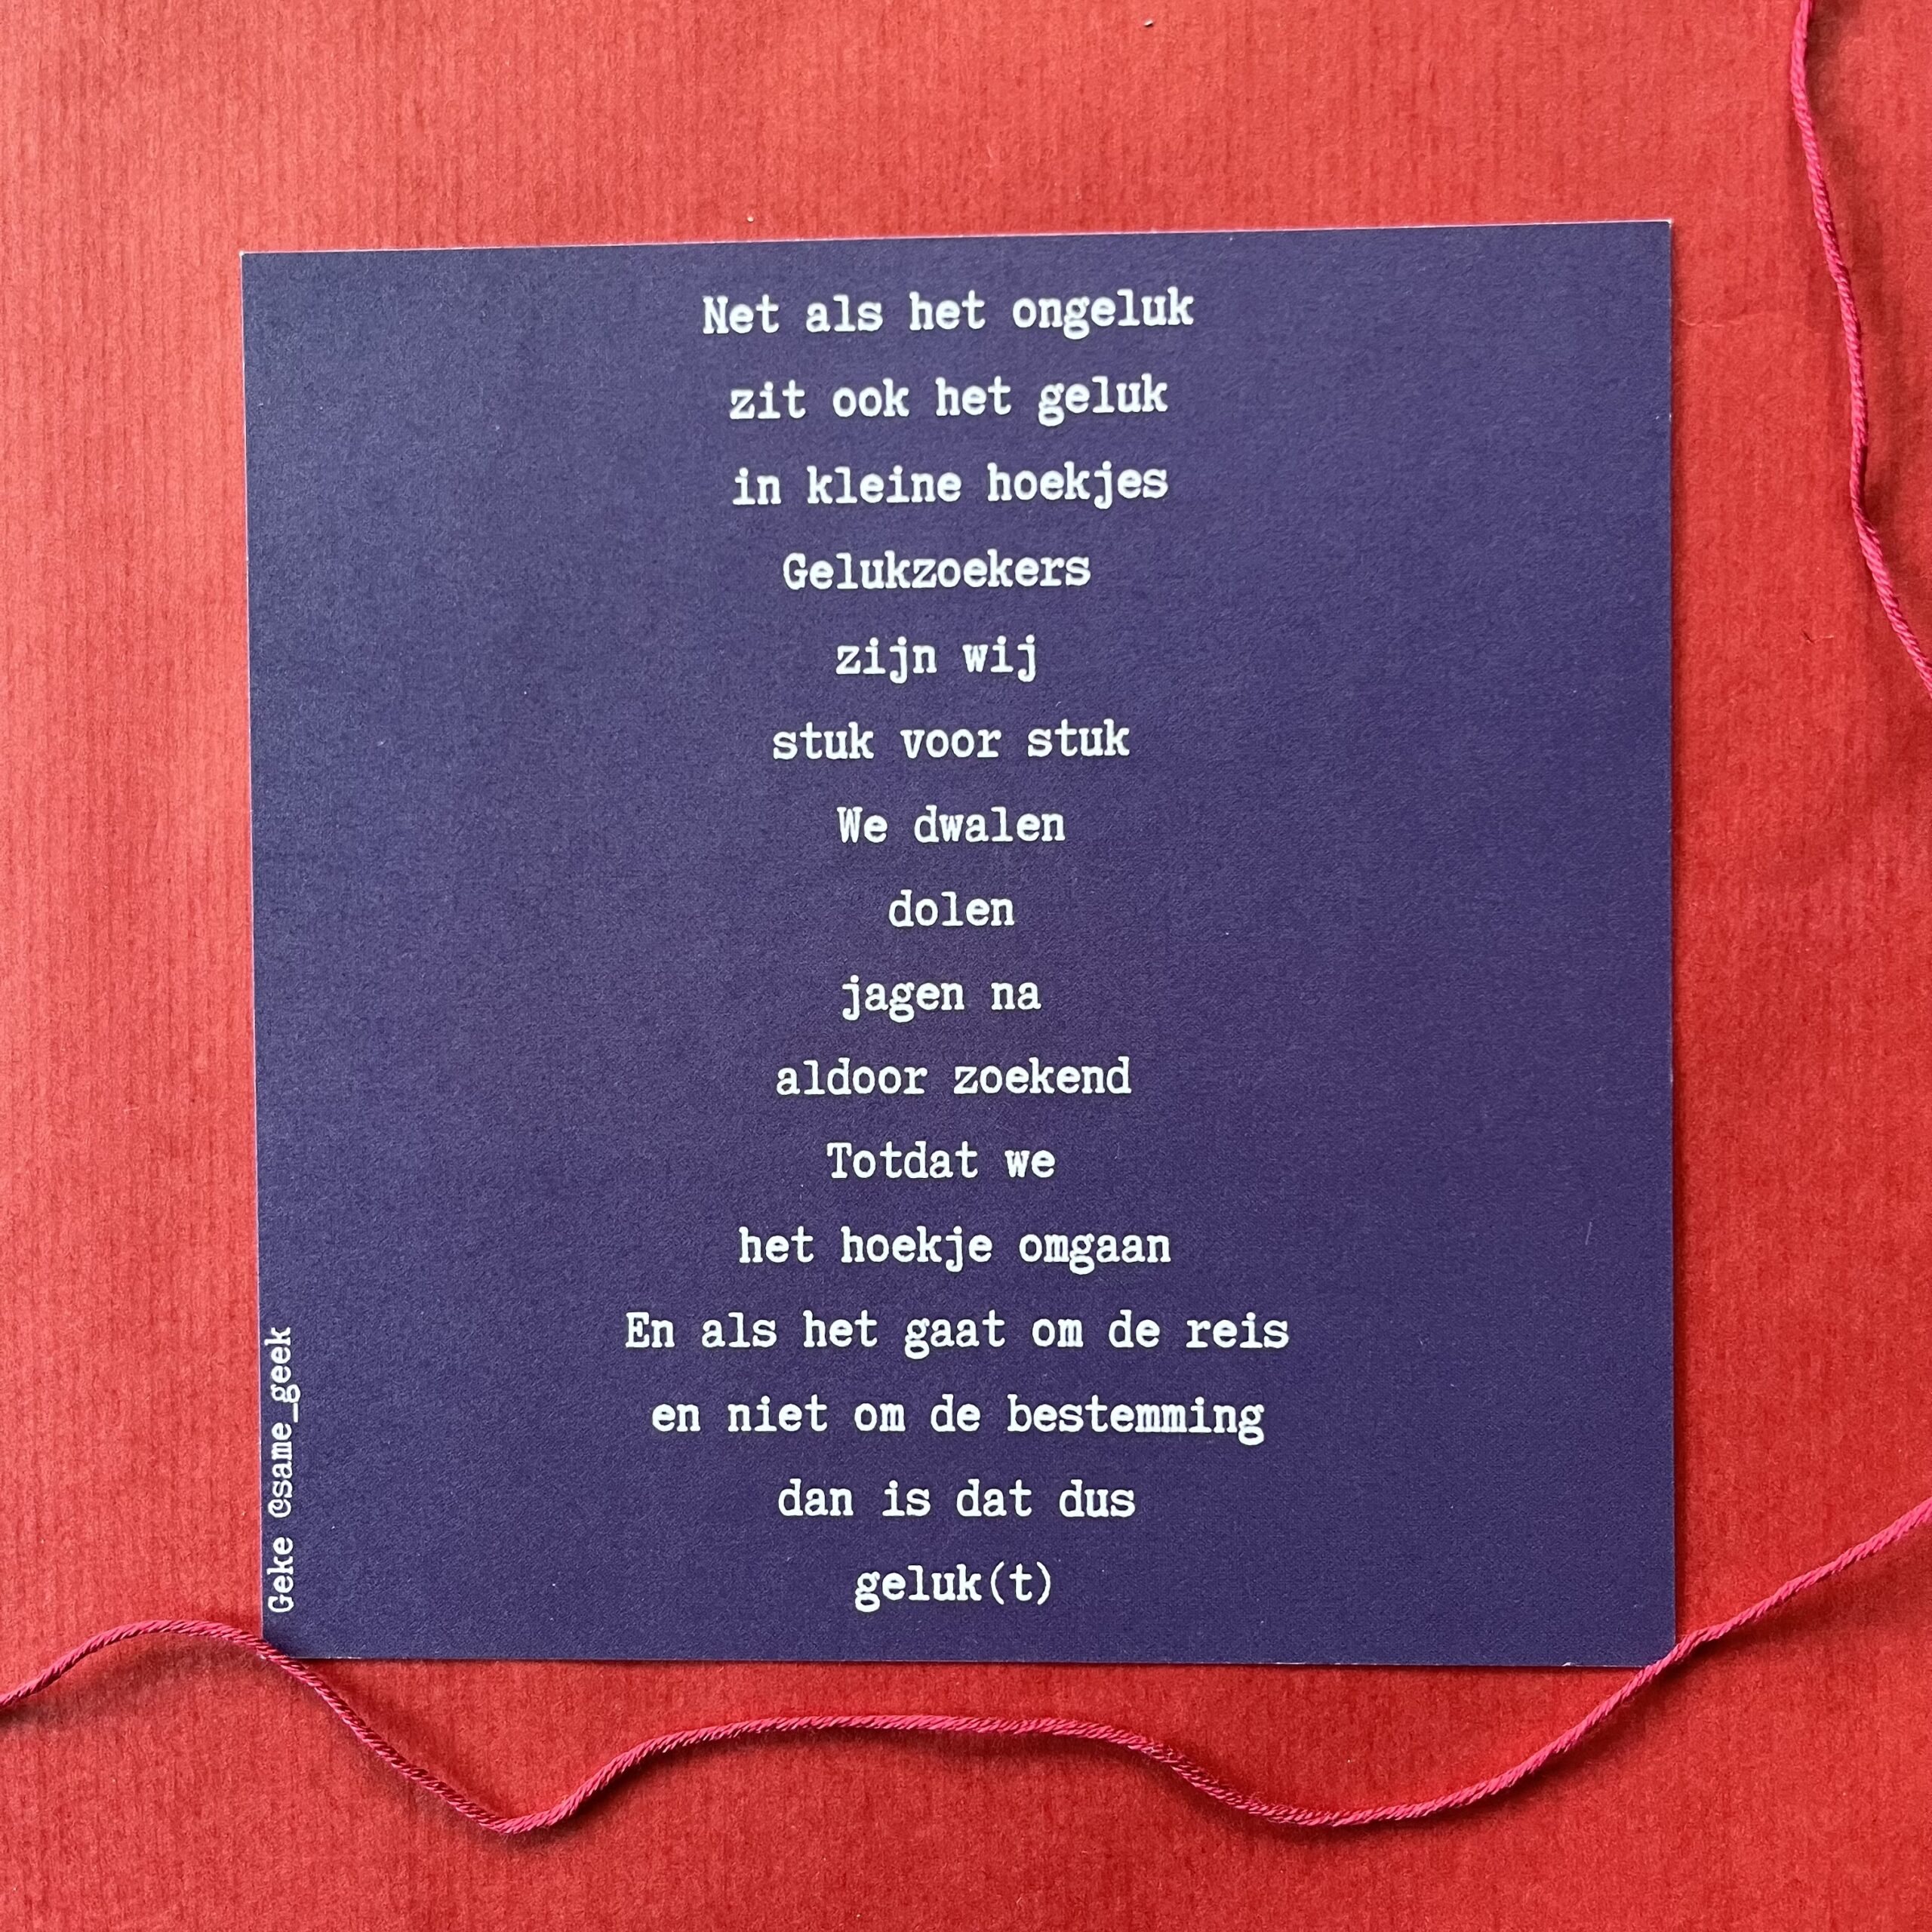 Net als het ongeluk
zit ook het geluk
in kleine hoekjes
Gelukzoekers
zijn wij
stuk voor stuk
We dwalen
dolen
jagen na
aldoor zoekend
Totdat we
het hoekje omgaan
En als het gaat om de reis
en niet om de bestemming
dan is dat dus
geluk(t)
Geke @same_geek